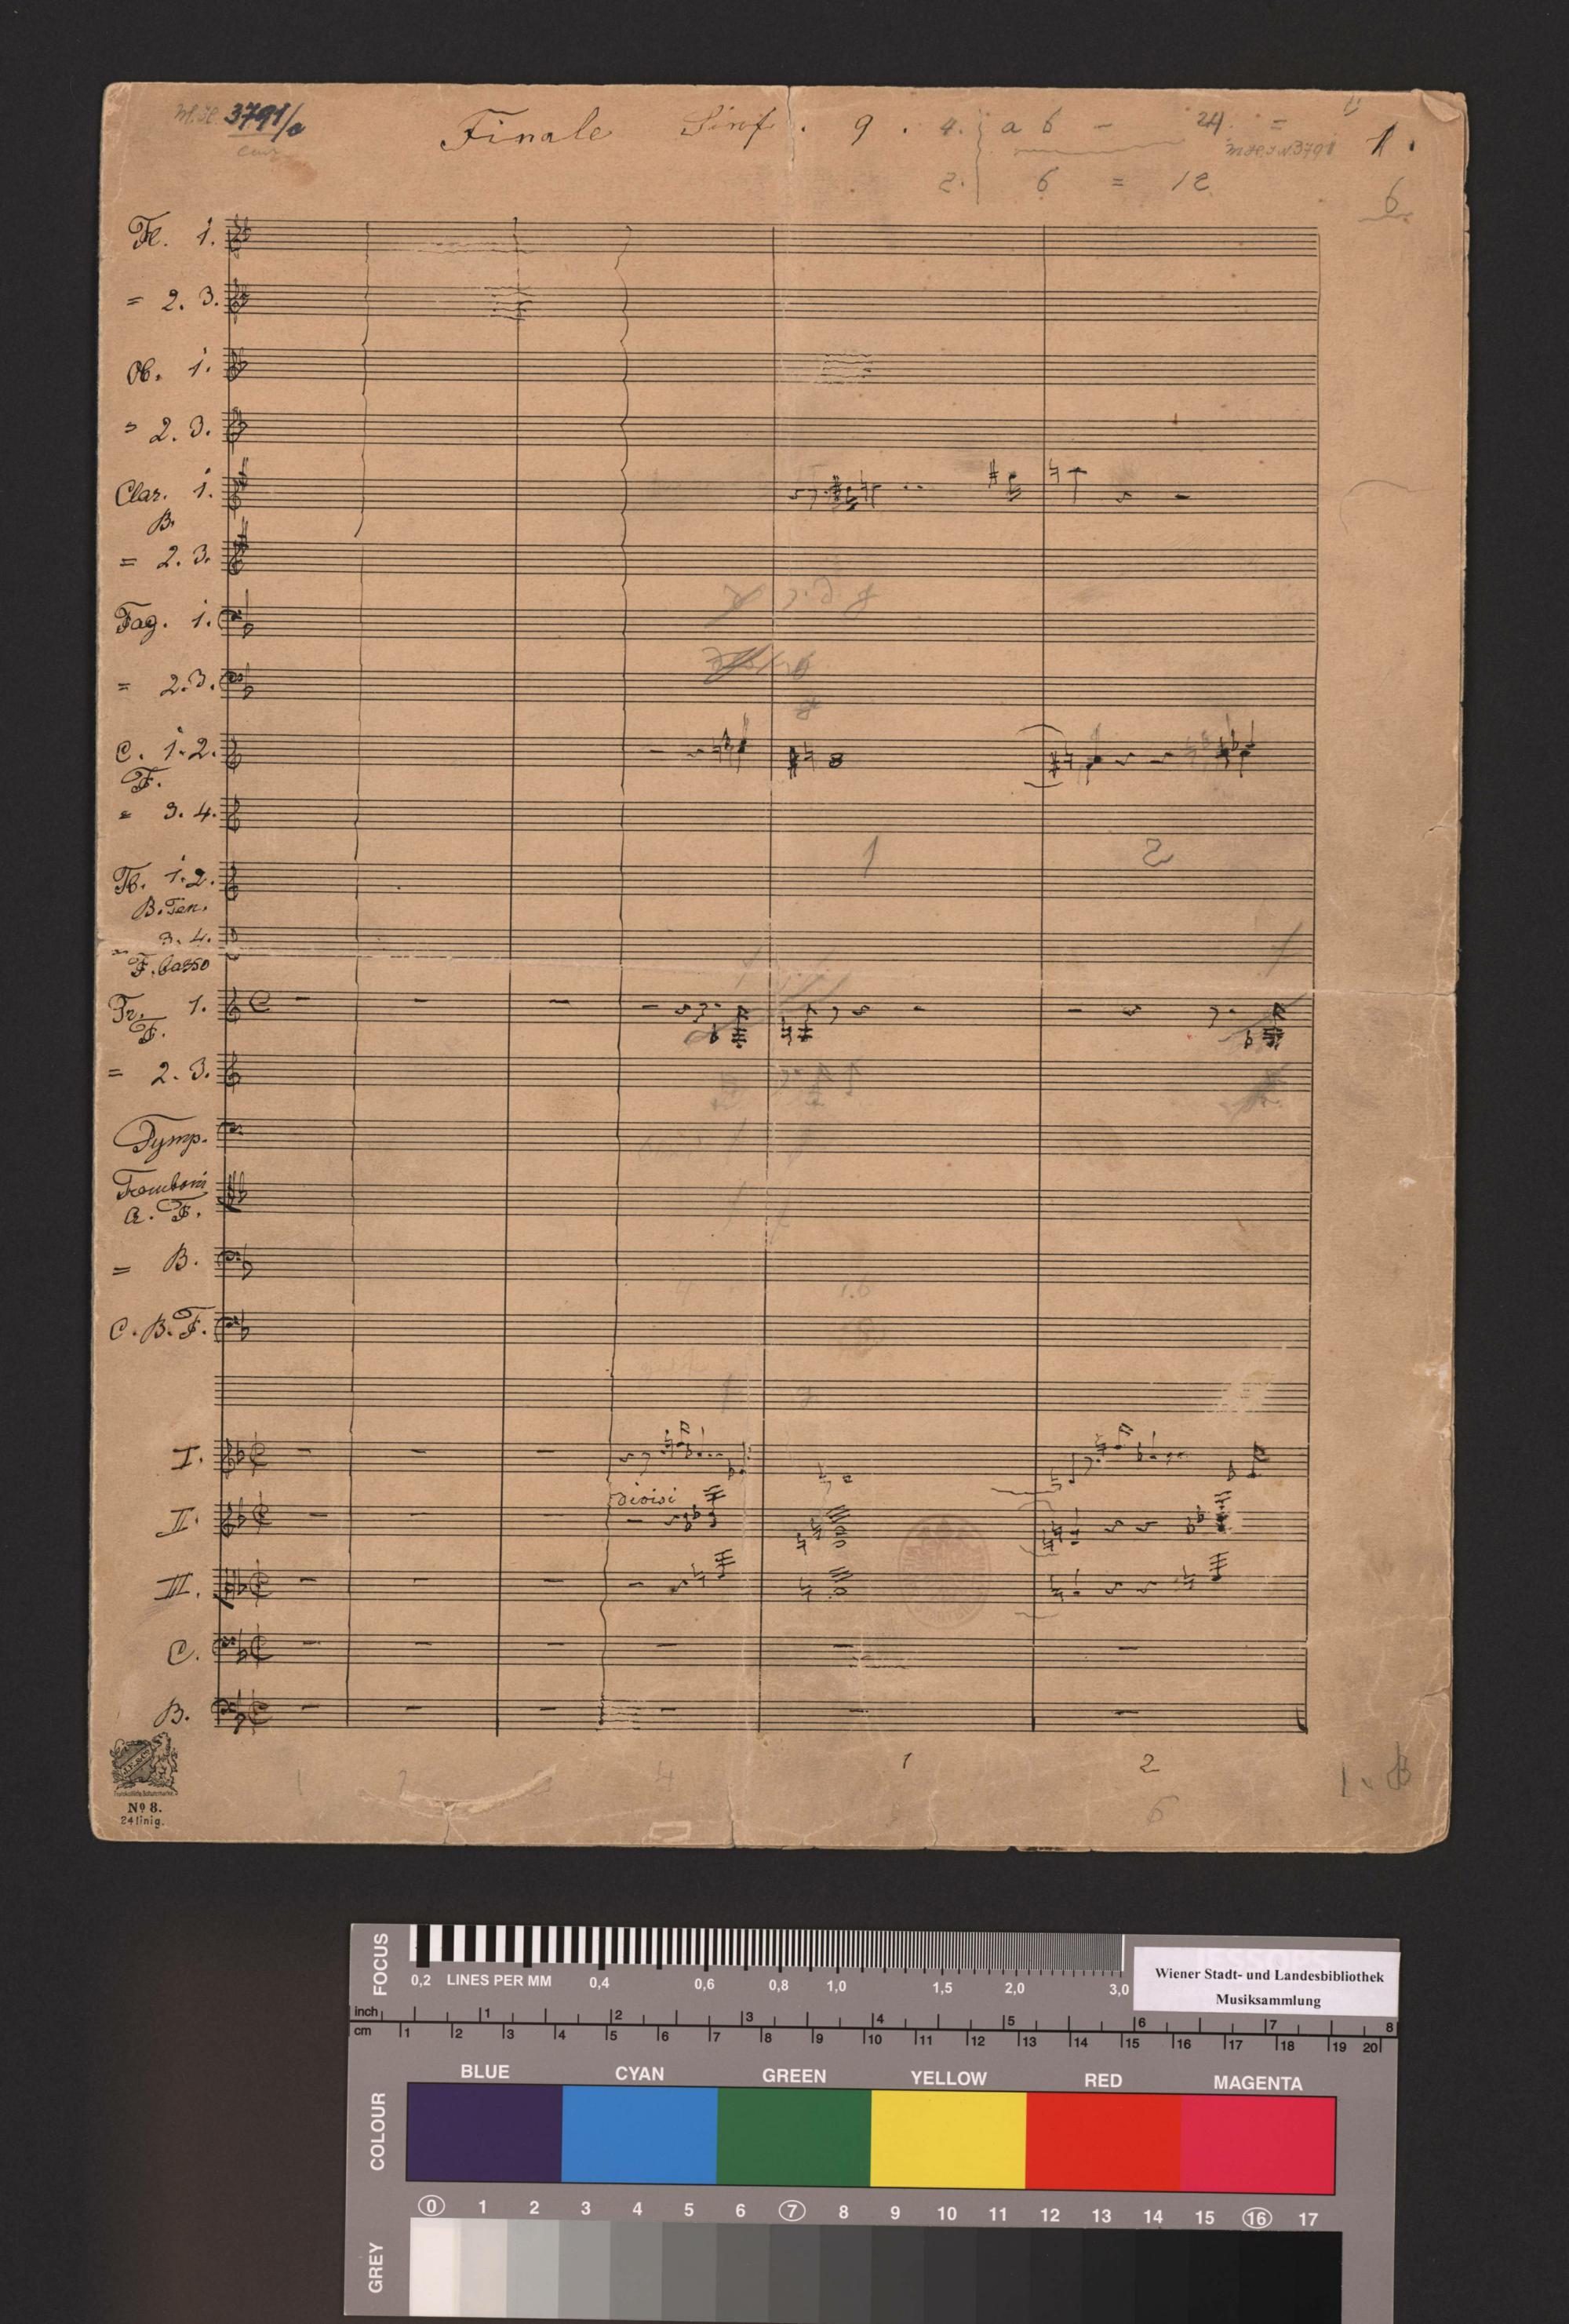 M.H. 3791/a
Finale Sinf. 9. 4. a 6 - 24 =
1.
2. 6 = 12
6
Fl. 1.
= 2. 3.
Ob. 1.
= 2. 3.
Clar. 1.
B.
= 2. 3.
Fag. 1.
= 2. 3.
C. 1. 2.
F.
= 3. 4.
1 2
Tb. 1. 2.
B. Ten.
= 3. 4.
F. basso
Tr. 1.
F.
= 2. 3.
Tymp.
Tromboni
A. T.
= B.
C. B. T.
I.
divisi
II.
III.
C.
B.
1 2
1 2 3 4
6
No 8.
24linig.
FOCUS
0,2 LINES PER MM 0,4 0,6 0,8 1,0 1,5 2,0 3,0
Wiener Stadt- und Landesbibliothek
Musiksammlung
inch 1 2 3 4 5 6 7 8
cm 1 2 3 4 5 6 7 8 9 10 11 12 13 14 15 16 17 18 19 20
COLOUR
BLUE CYAN GREEN YELLOW RED MAGENTA
0 1 2 3 4 5 6 7 8 9 10 11 12 13 14 15 16 17
GREY